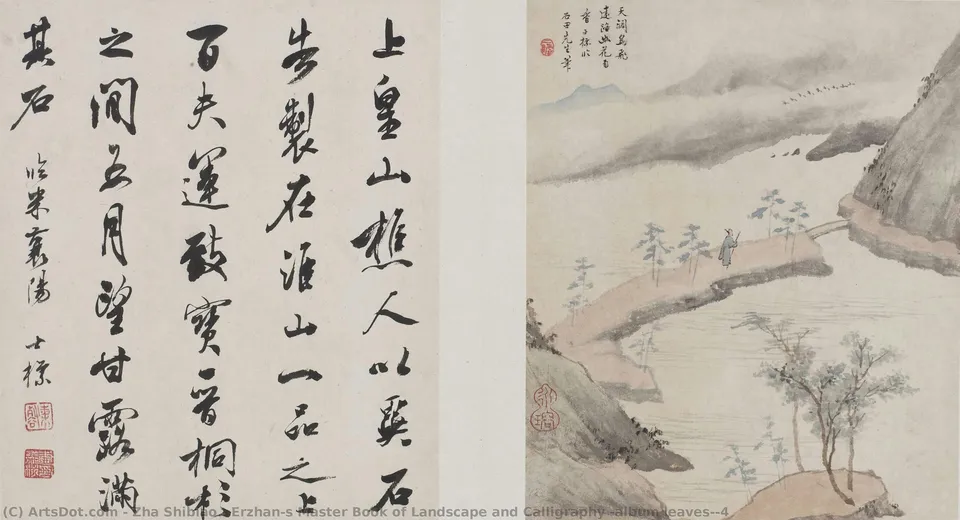 上皇山樵人以異石
告製在淮山一品之上
百夫運致寶晉桐杉
之間五月望甘露滿
其石
臨米襄陽 士標
天濶鳥飛
遠路幽花自
香士標以
石田先生筆
(C) ArtsDot.com - Zha Shibiao - Erzhan-s Master Book of Landscape and Calligraphy -album leaves--4